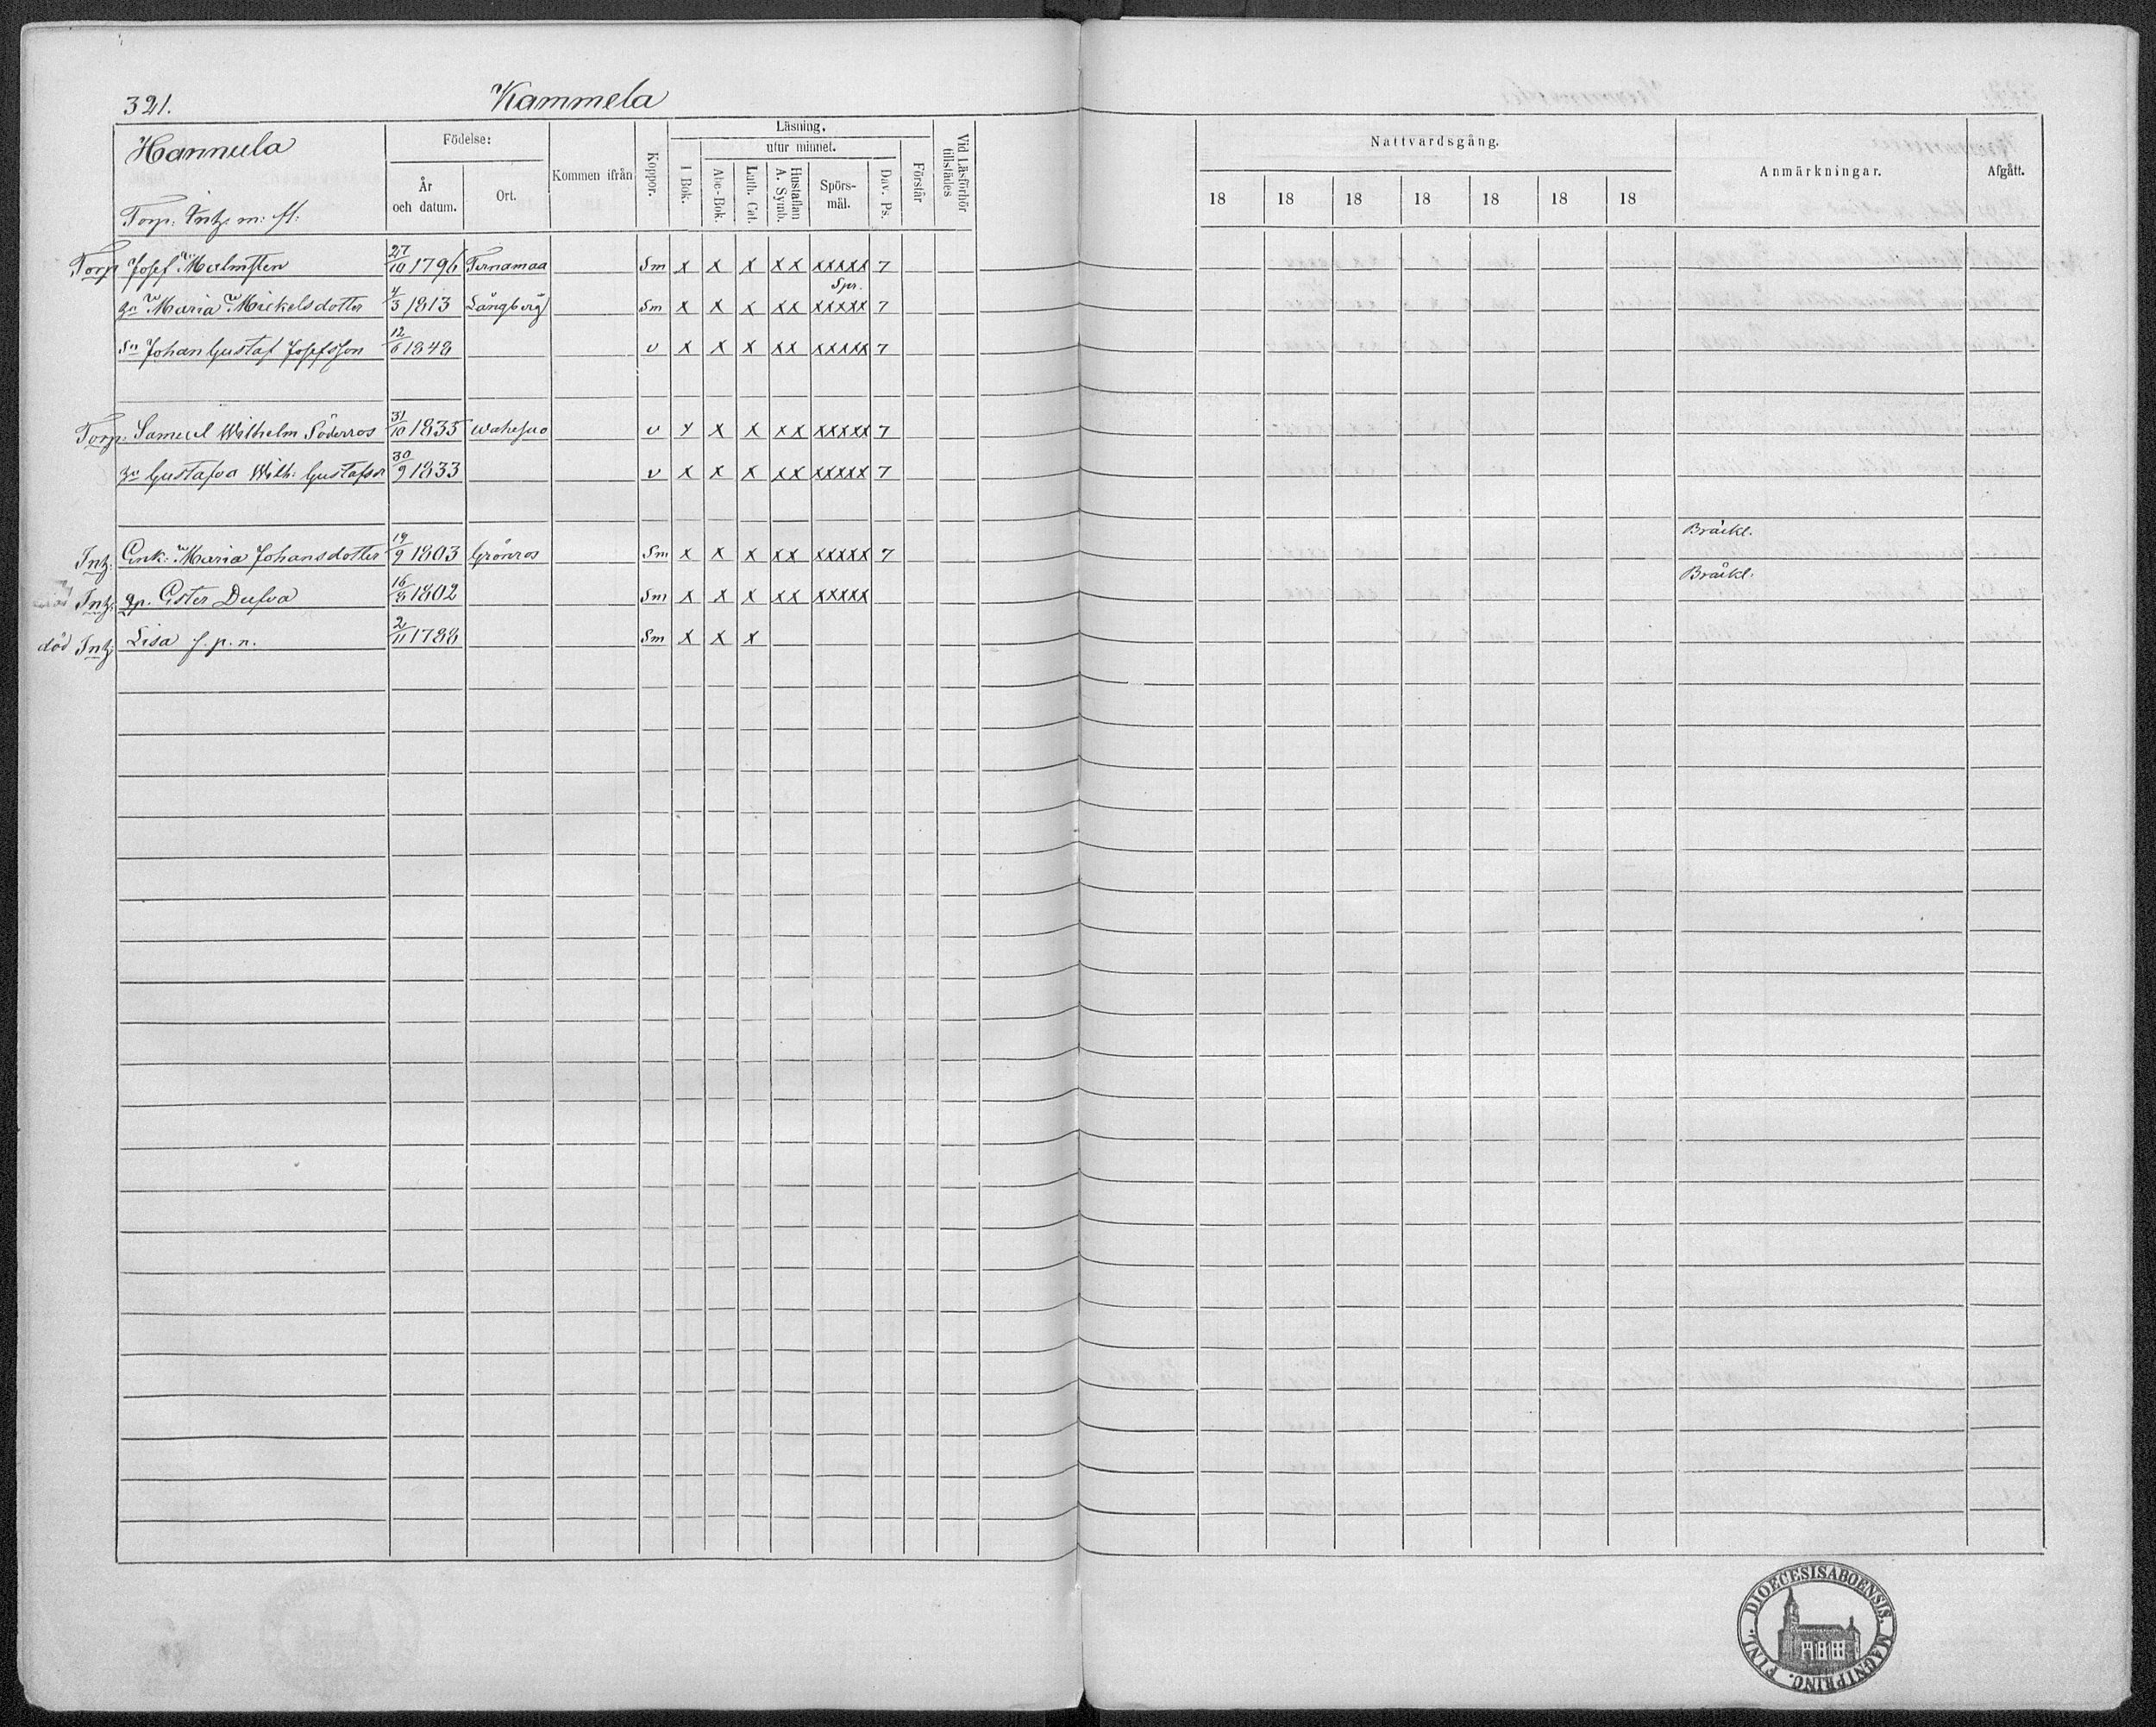 321. Kammela
Hannula
Torp. Intz. m: fl:
Födelse:
År och datum.
Ort.
Kommen ifrån
Koppor.
Läsning.
I Bok.
utur minnet.
Abc-Bok.
Luth. Cat.
Hustaflan A. Symb.
Spörs-mål.
Dav. Ps.
Förstår
Vid Läsförhör tillstädes
Nattvardsgång.
18 18 18 18 18 18 18
Anmärkningar.
Afgått.
Torp Josef Malmsten 27/10 1796 Ternamaa Sm x x x xx xxxxx 7
Spr.
Maria Mickelsdotter 4/3 1813 Långberg Sm x x x xx xxxxx 7
Sn Johan Gustaf Josefsson 12/6 1848 v x x x xx xxxxx 7
Torp. Samuel Wilhelm Söderros 31/10 1835 Wahesuo v x x x xx xxxxx 7
Gustafva Wilh: Gustafsd 30/9 1833 v x x x xx xxxxx 7
Bräckl.
Intz. Enk: Maria Johansdotter 19/9 1803 Grönros Sm x x x xx xxxxx 7
Bräckl.
Intz. gp. Ester Dufva 16/8 1802 Sm x x x xx xxxxx
död Intz. Lisa f. p. n. 2/11 1788 Sm x x x
DIOECESISABOENSIS. MAGNIPRINC. FINL.